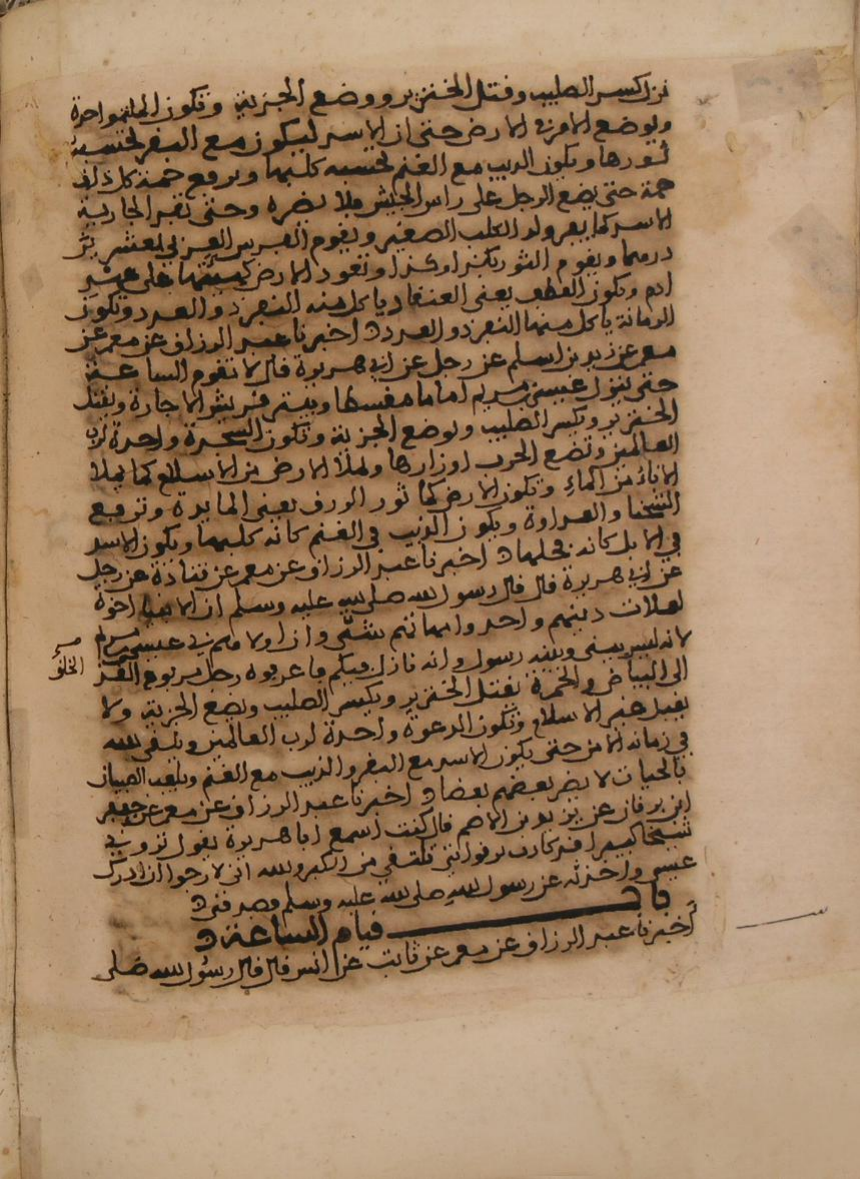 نزل كسر الصليب وقتل الخنزير ووضع الجزية وتكون الملة واحدة
ويوضع الامر في الارض حتى ان الاسد ليكون مع البقر تحسبه
ثورها ويكون الذيب مع الغنم تحسبه كلبها وترفع حمة كل ذات
حمة حتى يضع الرجل على راس الحنش فلا يضره وحتى تفر الجارية
الاسد كما يفر ولد الكلب الصغير ويقوم الفرس العربي بعشرين
درهما ويقوم الثور بكذا وكذا وتعود الارض كهيئتها على عهد
ادم ويكون القطف يعني العنقاد ياكل منه النفر ذو العدد وتكون
الرمانة ياكل منها النفر ذو العدد اخبرنا عبد الرزاق عن معمر عن
معمر عن زيد بن اسلم عن رجل عن ابي هريرة قال لا تقوم الساعة
حتى ينزل عيسى بن مريم اماما مقسطا ويبتز قريش الاجارة ويقتل
الخنزير ويكسر الصليب وتوضع الجزية وتكون السجدة واحدة لرب
العالمين وتضع الحرب اوزارها وتملا الارض من الاسلام كما تملا
الاناء من الماء وتكون الارض كما ثور الورق يعني المايدة وترفع
الشحنا والعداوة ويكون الذيب في الغنم كانه كلبها ويكون الاسد
في الابل كانه فحلها اخبرنا عبد الرزاق عن معمر عن قتادة عن رجل
عن ابي هريرة قال قال رسول الله صلى الله عليه وسلم ان الانبيا اخوة
لعلات دينهم واحد وامهاتهم شتى وان اولاهم بي عيسى بن مريم
لانه ليس بيني وبينه رسول وانه نازل فيكم فاعرفوه رجل مربوع الخلق
الى البياض والحمرة يقتل الخنزير ويكسر الصليب ويضع الجزية ولا
يقبل غير الاسلام وتكون الدعوة واحدة لرب العالمين ويلقى الله
في زمانه الامن حتى يكون الاسد مع البقر والذيب مع الغنم ويلعب الصبيان
بالحيات لا يضر بعضهم بعضا اخبرنا عبد الرزاق عن معمر عن جعفر
ابن برقان عن يزيد بن الاصم قال كنت اسمع ابا هريرة يقول تروني
شيخا كبيرا قد كادت ترقوتاي تلتقي من الكبر والله اني لارجوا ان ادرك
عيسى واحدثه عن رسول الله صلى الله عليه وسلم فيصدقني
باب قيام الساعة
اخبرنا عبد الرزاق عن معمر عن ثابت عن انس قال قال رسول الله صلى